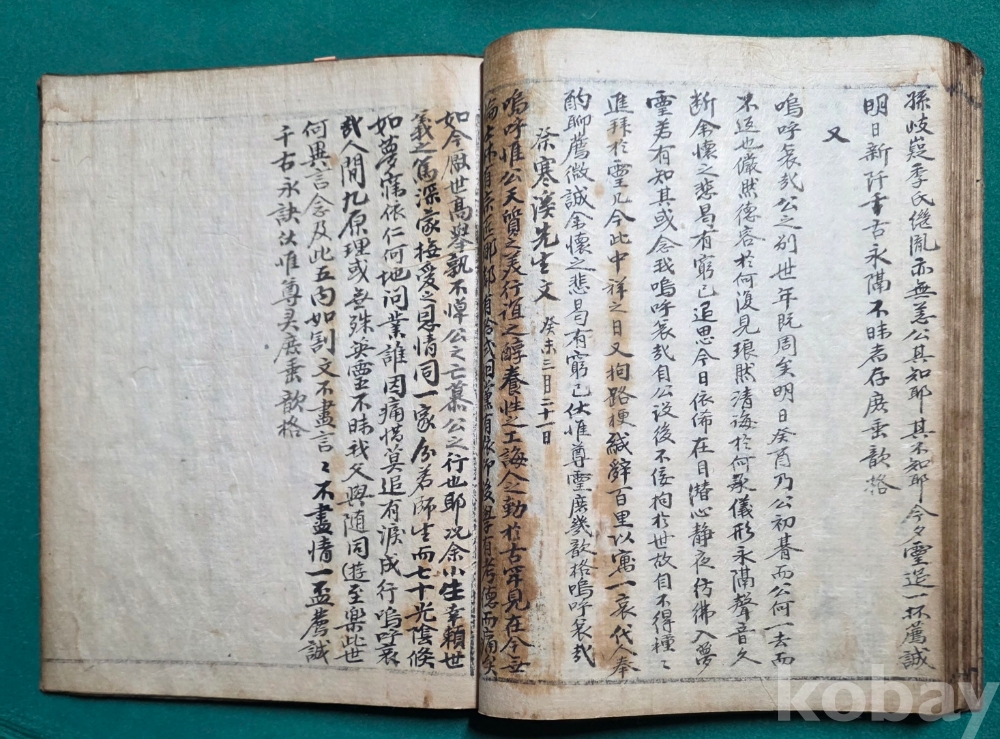 孫岐嶷季氏継胤亦無恙公其知耶其不知耶今夕霊筵一杯薦誠
明日新阡千古永隔不昧者存庶垂歆格
又
嗚呼哀哉公之别世年既周矣明日癸酉乃公初朞而公何一去而
不返也儼然德容於何復見琅然清誨於何承儀形永隔聲音久
断余懷之悲曷有窮已追思今日依俙在目潛心静夜彷彿入夢
霊若有知其或念我嗚呼哀哉自公設後不佞拘於世故自不得種〻
進拜於霊几今此中祥之日又拘路梗緘辞百里以寓一哀代人奉
酌聊薦微誠余懷之悲曷有窮已伏惟尊霊庶幾歆格嗚呼哀哉
祭寒溪先生文 癸未三月二十一日
嗚呼惟公天質之美行誼之醇養性之工誨人之勤於古罕見在今
如今厭世高擧孰不悼公之亡慕公之行也耶况余小生幸頼世
義之篤深蒙撫愛之恩情同一家分若師生而七十光陰倏
如夢寤依仁何地问業誰因痛惜莫追有淚成行嗚呼哀
哉人間九原理或無殊英霊不昧我父與随同遊至楽此世
何異言念及此五内如割文不盡言〻不盡情一盃薦誠
千古永訣伏惟尊灵庶垂歆格
kobay